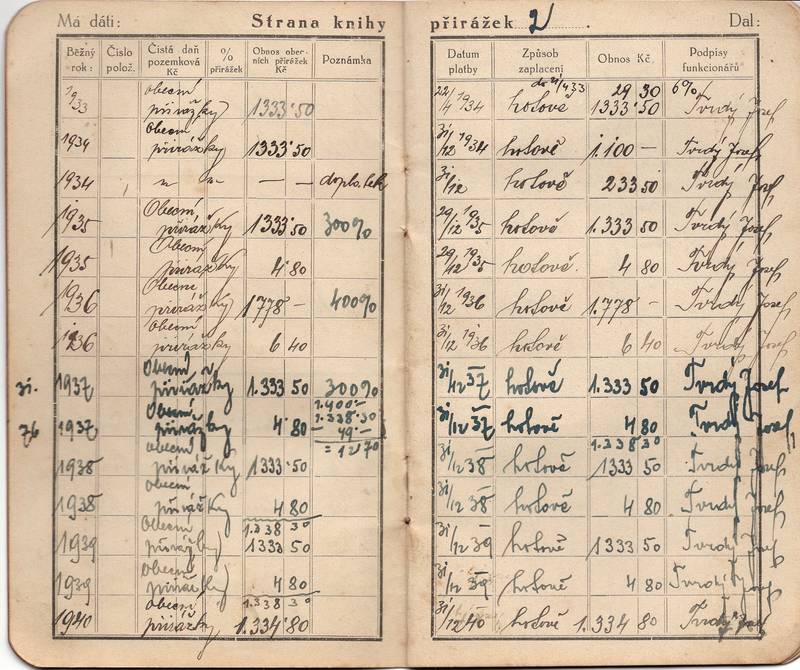 Má dáti: Strana knihy přirážek 2 Dal:
Běžný rok: Číslo polož. Čistá daň pozemková Kč % přirážek Obnos obecních přirážek Kč Poznámka Datum platby Způsob zaplacení Obnos Kč Podpisy funkcionářů
29 30 6%
1933 Obecní přirážky 1333·50 22/4 1934 hotově 1333·50 Tvrdý Josef
1934 Obecní přirážky 1333·50 31/12 1934 hotově 1.100 — Tvrdý Josef
1934 " " — — doplatek 31/12 hotově 233 50 Tvrdý Josef
1935 Obecní přirážky 1333·50 300% 29/12 1935 hotově 1.333 50 Tvrdý Josef
1935 Obecní přirážky 4·80 29/12 1935 hotově. 4 80 Tvrdý Josef
1936 Obecní přirážky 1778 — 400% 31/12 1936 hotově 1.778 — Tvrdý Josef
1936 Obecní přirážky 6 40 31/12 1936 hotově 6 40 Tvrdý Josef
31. 1937 Obecní přirážky 1.333 50 300% 31/12 37 hotově 1.333 50 Tvrdý Josef
1.400 —
1.338·30
76 1937 Obecní přirážky 4·80 49 — 31/12 37 hotově 4 80 Tvrdý Josef
1.338 30
1938 Obecní přirážky 1333·50 31/12 38 hotově 1333 50 Tvrdý Josef
1938 Obecní přirážky 4 80 31/12 38 hotově 4 80 Tvrdý Josef
1.338 30
1939 Obecní přirážky 1333 50 31/12 39 hotově 1333 50 Tvrdý Josef
1939 Obecní přirážky 4 80 31/12 39 hotově 4 80 Tvrdý Josef
1.338 30
1940 Obecní přirážky 1.334·80 31/12 40 hotově 1.334 80 Tvrdý Josef